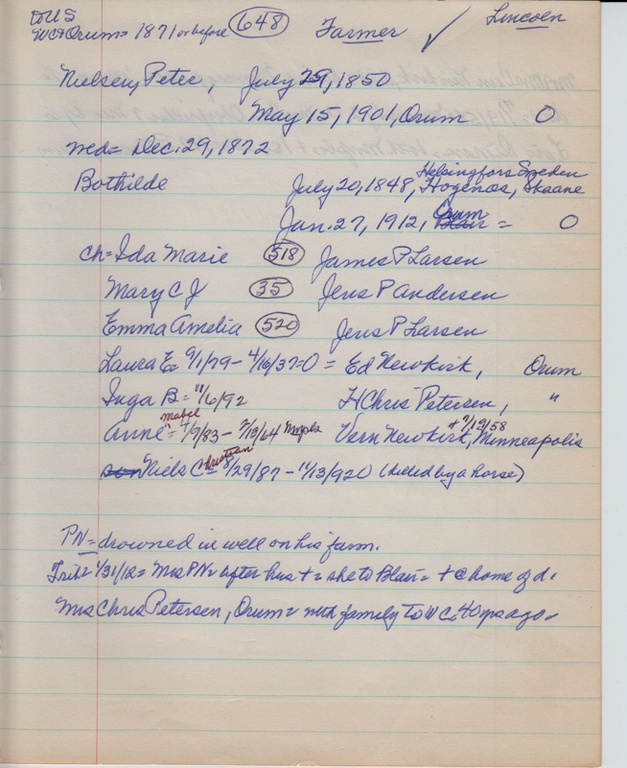 to US Lincoln
WC+Orum= 1871 or before 648 Farmer ✓
Nielsen, Peter, July 29, 1850
May 15, 1901, Orum O
med= Dec. 29, 1872
Helsingfors Sweden
Bothilde July 20, 1848, Hogenos, Skaane
Orum
Jan. 27, 1912, Blair = O
ch= Ida Marie 518 James P Larsen
Mary C J 35 Jens P Andersen
Emma Amelia 520 Jens P Larsen
Laura E= 9/1/79 - 4/16/37=O = Ed Newkirk, Orum
Inga B= 11/6/92 H Chris Petersen, "
mabel + 7/12/58
Anne "= 4/9/83 - 2/13/64 Mpls Vern Newkirk, Minneapolis
hristian
son Niels C= 8/29/87 - 11/13/920 (kicked by a horse)
PN= drowned in well on his farm.
Trib= 1/31/12= Mrs PN= after hus += she to Blair= + @ home of d.
Mrs Chris Petersen, Orum= with family to WC 40 yrs ago.